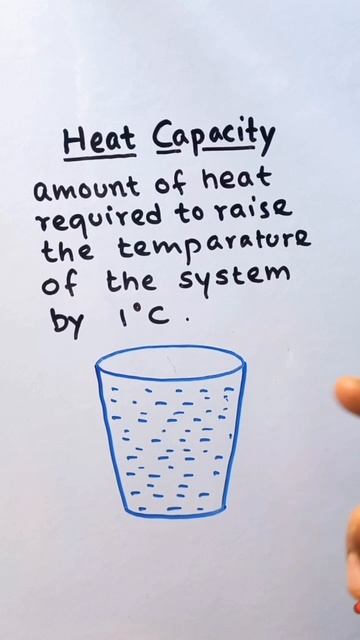 Heat Capacity
amount of heat
required to raise
the temparature
of the system
by 1°C.